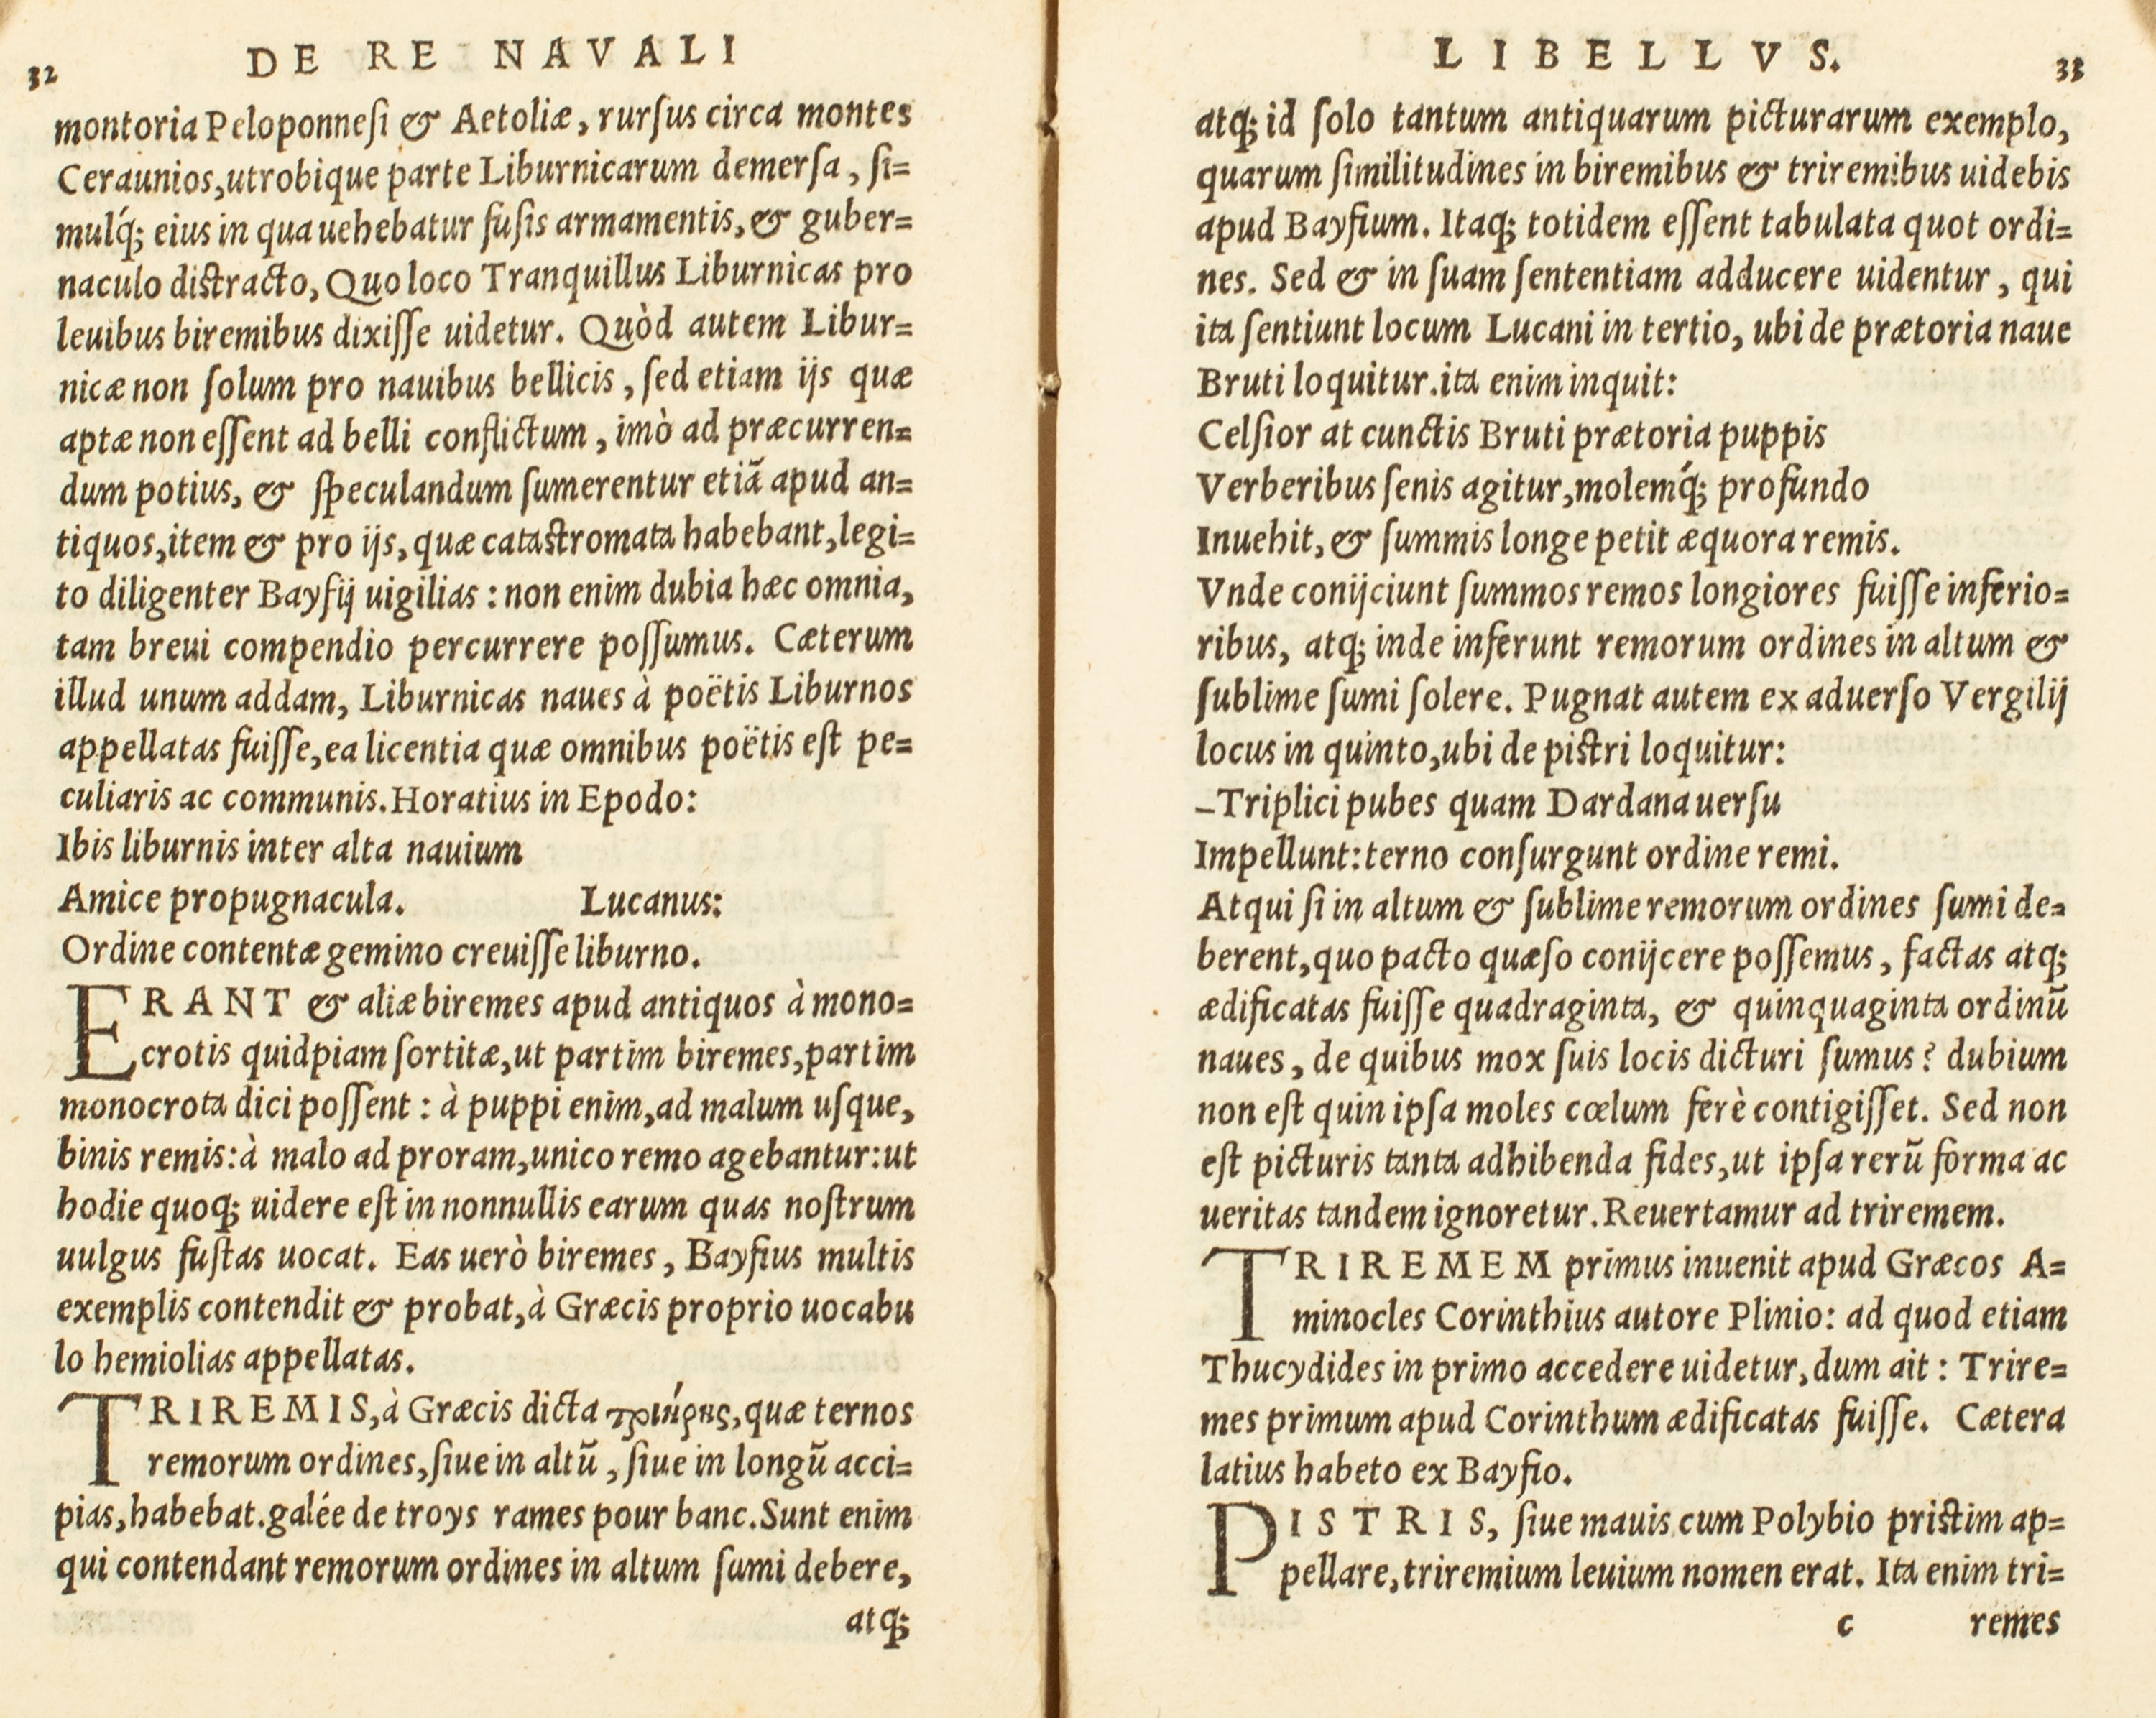 32 DE RE NAVALI
montoria Peloponneſi & Aetoliæ, rurſus circa montes
Ceraunios, utrobique parte Liburnicarum demerſa, ſi=
mulq́; eius in qua uehebatur fuſis armamentis, & guber=
naculo diſtracto, Quo loco Tranquillus Liburnicas pro
leuibus biremibus dixiſſe uidetur. Quòd autem Libur=
nicæ non ſolum pro nauibus bellicis, ſed etiam ijs quæ
aptæ non eſſent ad belli conflictum, imò ad præcurren=
dum potius, & ſpeculandum ſumerentur etiā apud an=
tiquos, item & pro ijs, quæ cataſtromata habebant, legi=
to diligenter Bayfij uigilias: non enim dubia hæc omnia,
tam breui compendio percurrere poſſumus. Cæterum
illud unum addam, Liburnicas naues à poëtis Liburnos
appellatas fuiſſe, ea licentia quæ omnibus poëtis eſt pe=
culiaris ac communis. Horatius in Epodo:
Ibis liburnis inter alta nauium
Amice propugnacula. Lucanus:
Ordine contentæ gemino creuiſſe liburno.
ERANT & aliæ biremes apud antiquos à mono=
crotis quidpiam ſortitæ, ut partim biremes, partim
monocrota dici poſſent: à puppi enim, ad malum uſque,
binis remis: à malo ad proram, unico remo agebantur: ut
hodie quoq; uidere eſt in nonnullis earum quas noſtrum
uulgus fuſtas uocat. Eas uerò biremes, Bayfius multis
exemplis contendit & probat, à Græcis proprio uocabu
lo hemiolias appellatas.
TRIREMIS, à Græcis dicta τριήρης, quæ ternos
remorum ordines, ſiue in altū, ſiue in longū acci=
pias, habebat. galée de troys rames pour banc. Sunt enim
qui contendant remorum ordines in altum ſumi debere,
atq;
LIBELLVS. 33
atq; id ſolo tantum antiquarum picturarum exemplo,
quarum ſimilitudines in biremibus & triremibus uidebis
apud Bayfium. Itaq; totidem eſſent tabulata quot ordi=
nes. Sed & in ſuam ſententiam adducere uidentur, qui
ita ſentiunt locum Lucani in tertio, ubi de prætoria naue
Bruti loquitur. ita enim inquit:
Celſior at cunctis Bruti prætoria puppis
Verberibus ſenis agitur, molemq́; profundo
Inuehit, & ſummis longe petit æquora remis.
Vnde conijciunt ſummos remos longiores fuiſſe inferio=
ribus, atq; inde inferunt remorum ordines in altum &
ſublime ſumi ſolere. Pugnat autem ex aduerſo Vergilij
locus in quinto, ubi de piſtri loquitur:
–Triplici pubes quam Dardana uerſu
Impellunt: terno conſurgunt ordine remi.
Atqui ſi in altum & ſublime remorum ordines ſumi de=
berent, quo pacto quæſo conijcere poſſemus, factas atq;
ædificatas fuiſſe quadraginta, & quinquaginta ordinū
naues, de quibus mox ſuis locis dicturi ſumus? dubium
non eſt quin ipſa moles cœlum ferè contigiſſet. Sed non
eſt picturis tanta adhibenda fides, ut ipſa rerū forma ac
ueritas tandem ignoretur. Reuertamur ad triremem.
TRIREMEM primus inuenit apud Græcos A=
minocles Corinthius autore Plinio: ad quod etiam
Thucydides in primo accedere uidetur, dum ait: Trire=
mes primum apud Corinthum ædificatas fuiſſe. Cætera
latius habeto ex Bayfio.
PISTRIS, ſiue mauis cum Polybio priſtim ap=
pellare, triremium leuium nomen erat. Ita enim tri=
c remes